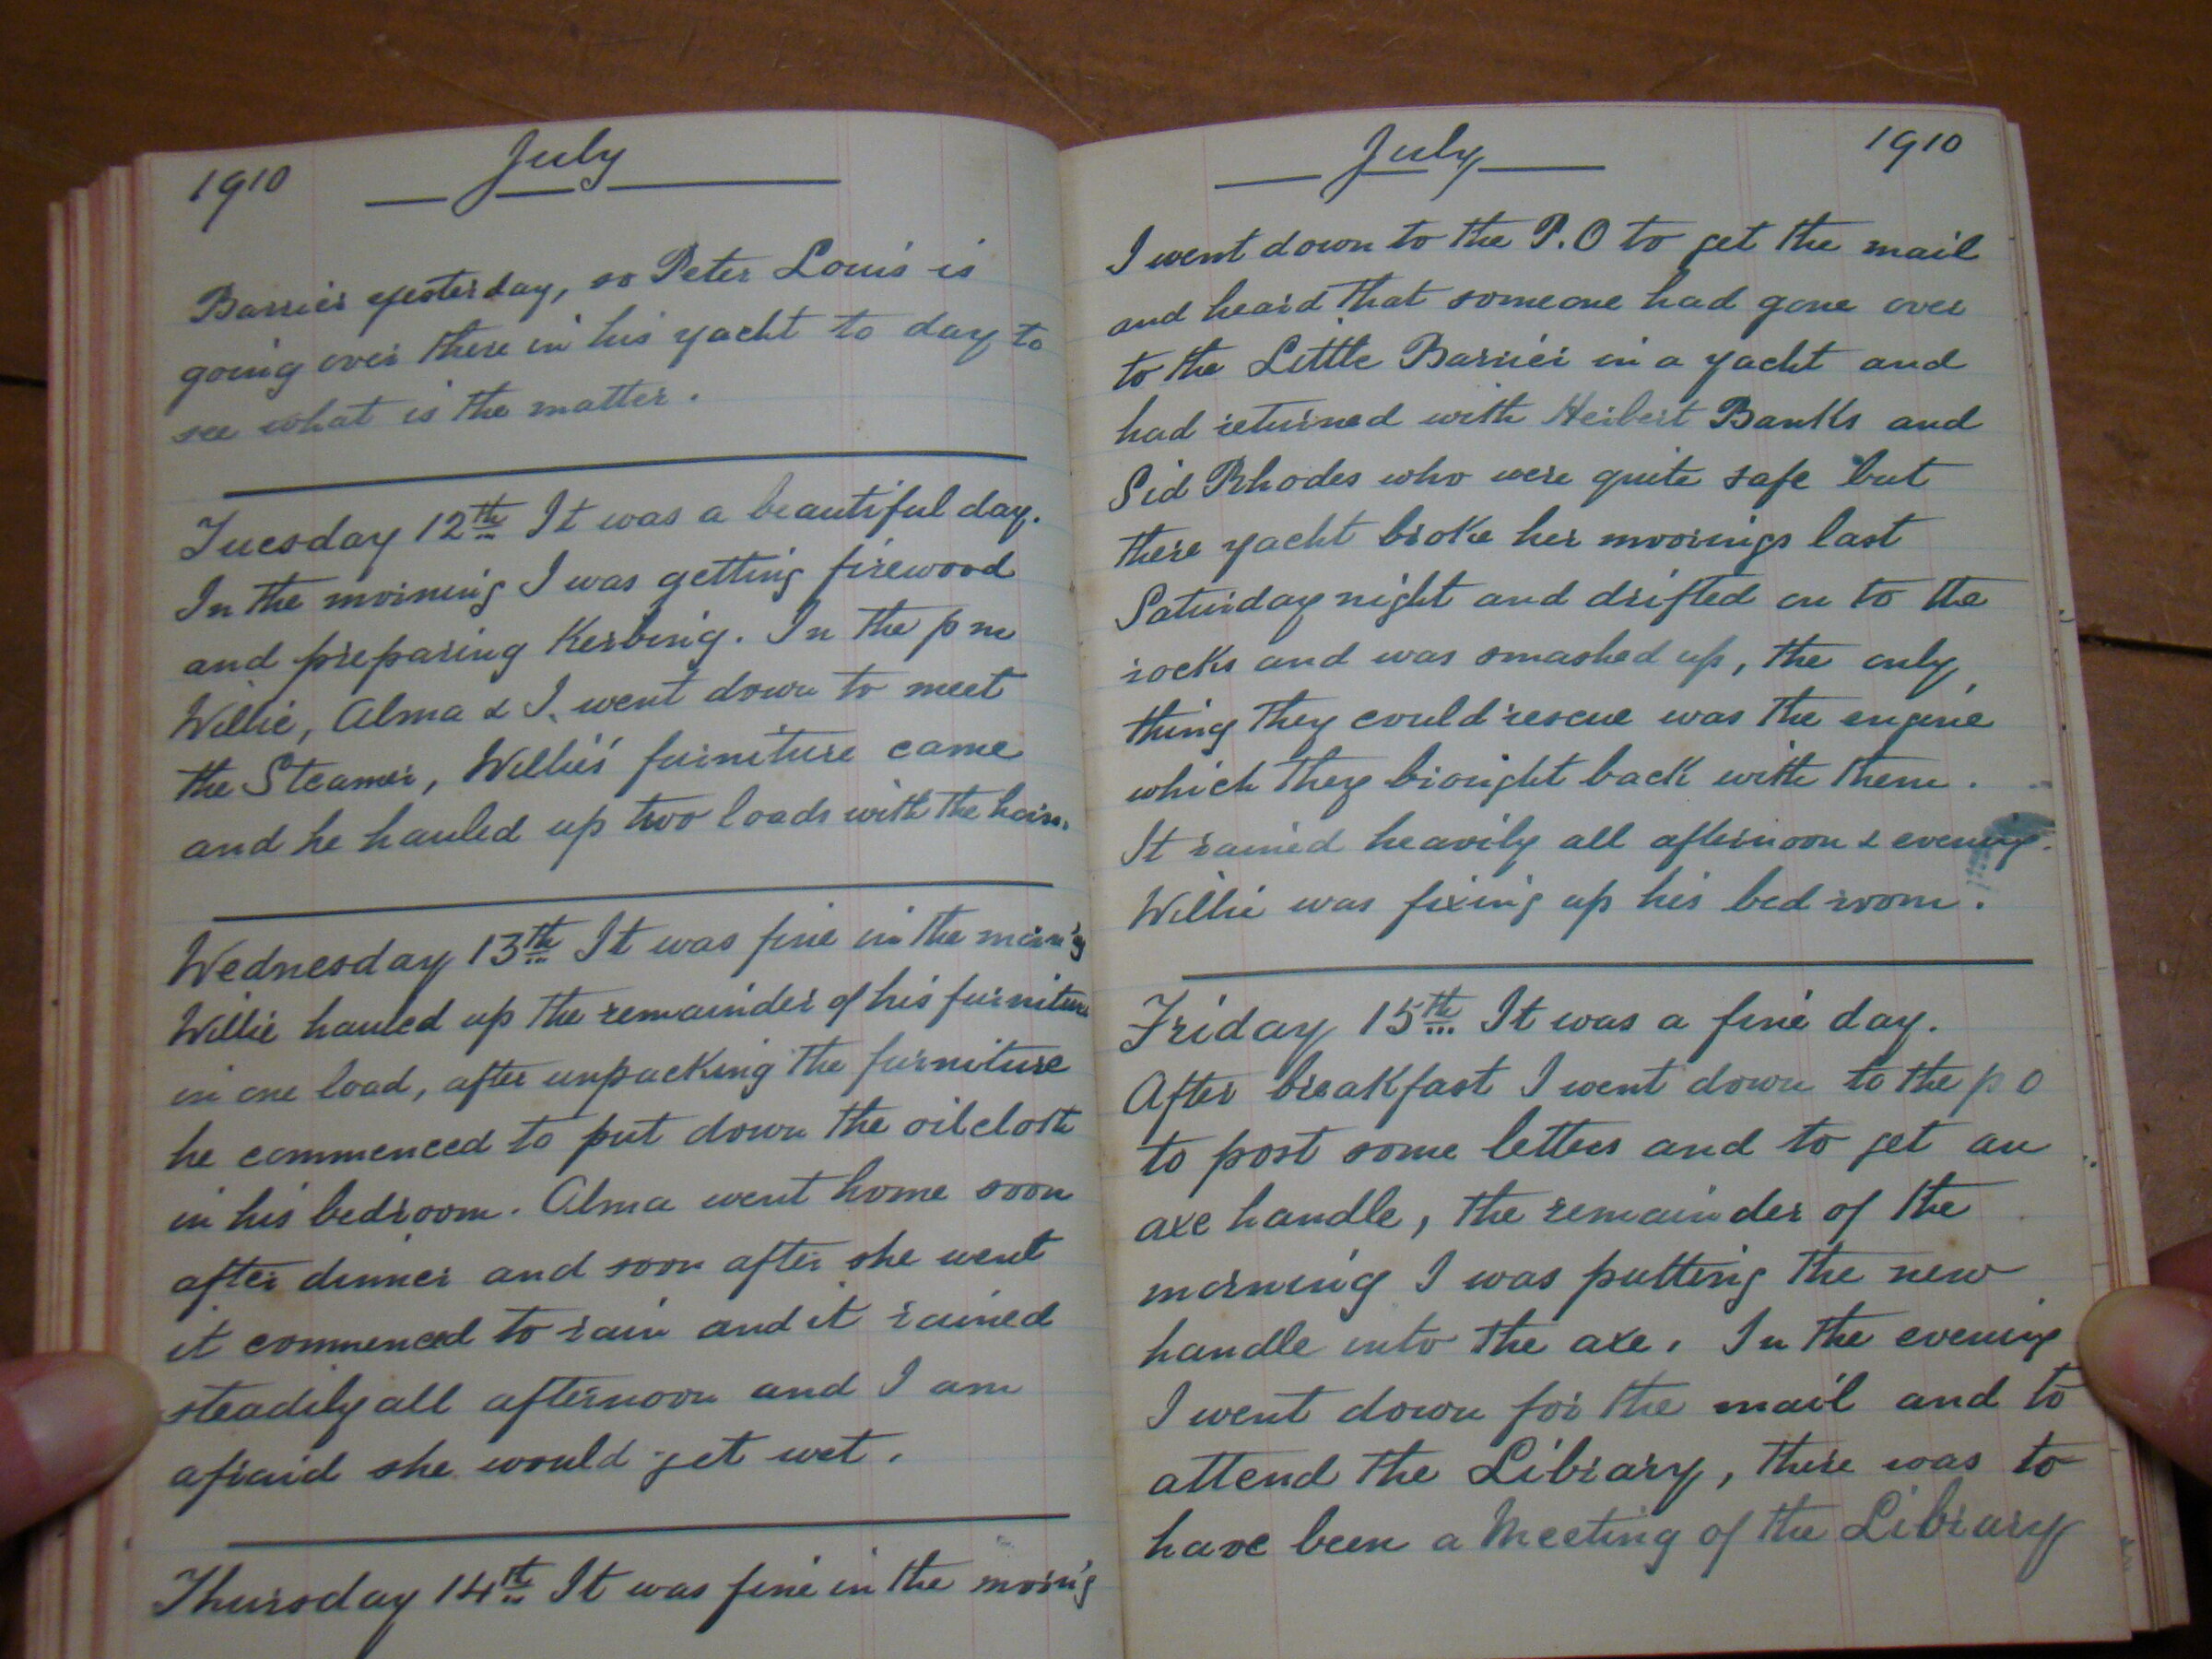 1910 July
Barrier yesterday, so Peter Louis is
going over there in his yacht to day to
see what is the matter.
Tuesday 12th It was a beautiful day.
In the morning I was getting firewood
and preparing Kerbing. In the p m
Willie, Alma & I. went down to meet
the Steamer, Willie's furniture came
and he hauled up two loads with the
Wednesday 13th It was fine in the morn'g
Willie hauled up the remainder of his furniture
in one load, after unpacking the furniture
he commenced to put down the oilcloth
in his bedroom. Alma went home soon
after dinner and soon after she went
it commenced to rain and it rained
steadily all afternoon and I am
afraid she would get wet.
Thursday 14th It was fine in the morn'g
July 1910
I went down to the P.O to get the mail
and heard that someone had gone over
to the Little Barrier in a yacht and
had returned with Herbert Banks and
Sid Rhodes who were quite safe but
there yacht broke her moorings last
Saturday night and drifted on to the
rocks and was smashed up, the only
thing they could rescue was the engine
which they brought back with them.
It rained heavily all afternoon & evening.
Willie was fixing up his bed room.
Friday 15th It was a fine day.
After breakfast I went down to the p o
to post some letters and to get an
axe handle, the remainder of the
morning I was putting the new
handle into the axe. In the evening
I went down for the mail and to
attend the Library, there was to
have been a Meeting of the Library